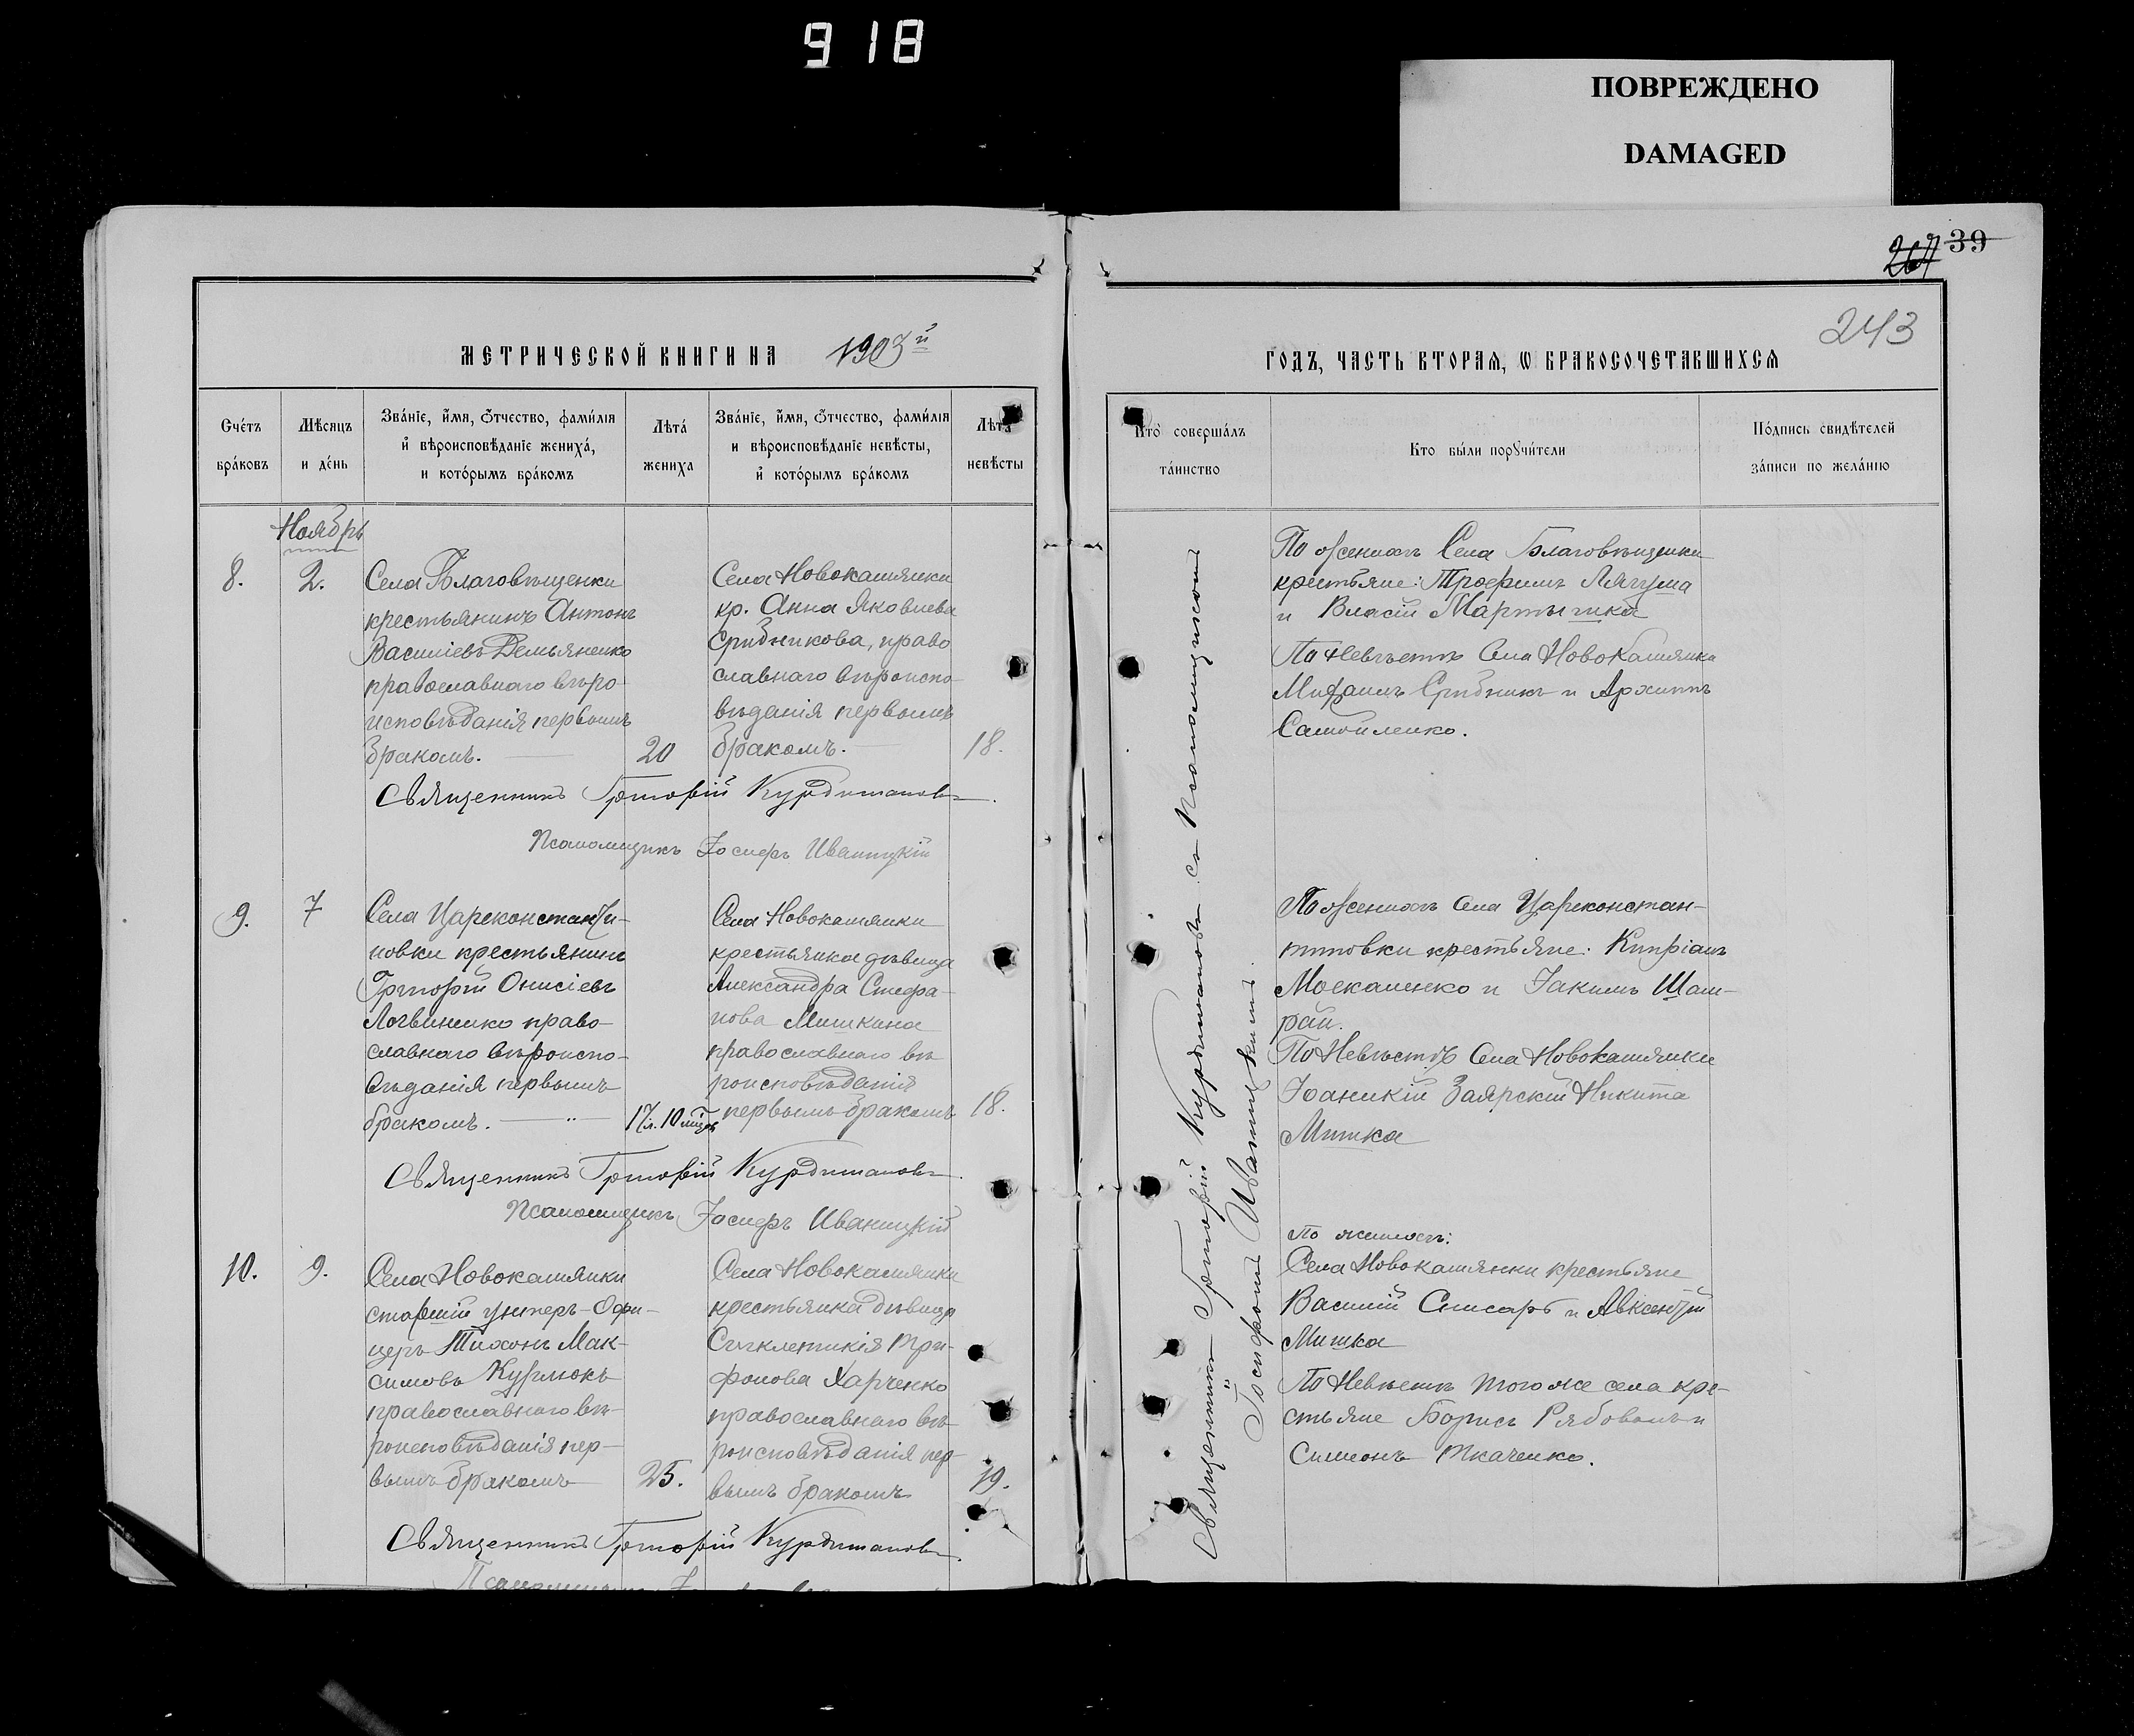 918
ПОВРЕЖДЕНО
DAMAGED
39
243
МЕТРИЧЕСКОЙ КНИГИ НА 1903й
ГОДЪ, ЧАСТЬ ВТОРАЯ, Ѡ БРАКОСОЧЕТАВШИХСЯ
Сче́тъ
бра́ковъ
Мѣсяцъ
и де́нь
Зва́нїе, и҆́мя, ѻ҆́тчество, фами́лїя
и҆ вѣроисповѣданїе жениха́,
и кото́рымъ бра́комъ
Лѣта́
жениха
Зва́нїе, и҆́мя, ѻ҆́тчество, фами́лїя
и вѣроисповѣданїе невѣсты,
и҆ кото́рымъ бра́комъ
Лѣта
невѣсты
Кто̀ соверша́лъ
та́инство
Кто бы́ли порꙋчи́тели
По́дпись свидѣтелей
за́писи по жела́нію
Ноябрь
8.
2.
Села Благовѣщенки
крестьянинъ Антонъ
Василіевъ Демьяненко
православнаго вѣро-
исповѣданія первымъ
бракомъ.
20
Села Новокамянки
кр. Анна Яковлева
Срибникова, право
славнаго вѣроиспо-
вѣданія первымъ
бракомъ.
18.
Священникъ Григорій Курдимановъ
Псаломщикъ Іосифъ Иваницкій
По женихѣ Села Благовѣщенки
крестьяне: Трофимъ Лягуша
и Власій Мартышка
По Невѣстѣ Села Новокамянки
Михаилъ Срибникъ и Архиппъ
Самойленко.
9.
7
Села Цареконстанти-
новки крестьянинъ
Григорій Онисіевъ
Логвиненко право-
славнаго вѣроиспо-
вѣданія первымъ
бракомъ.
17 л. 10 мѣсц.
Села Новокамянки
крестьянка дѣвица
Александра Стефа-
нова Мишкина
православнаго вѣ
роисповѣданія
первымъ бракомъ
18.
Священникъ Григорій Курдимановъ
Псаломщикъ Іосифъ Иваницкій
По женихѣ Села Цареконстан-
тиновки крестьяне: Кипріанъ
Москаленко и Іакимъ Шам-
рай.
По Невѣстѣ Села Новокамянки
Іоаникій Заярскій Никита
Мишка
10.
9.
Села Новокамянки
старшій унтеръ-Офи-
церъ Тихонъ Мак-
симовъ Курлюкъ
православнаго вѣ-
роисповѣданія пер-
вымъ бракомъ
25.
Села Новокамянки
крестьянка дѣвица
Сигклетикія Три-
фонова Харченко
православнаго вѣ
роисповѣданія пер-
вымъ бракомъ
19.
Священникъ Григорій Курдимановъ
По женихѣ:
Села Новокамянки крестьяне
Василій Слисарь и Авксентій
Мишка
По Невѣстѣ того же села кре-
стьяне Борисъ Рябоволъ и
Симеонъ Ткаченко.
Священникъ Григорій Курдимановъ съ Псаломщикомъ
Іосифомъ Иваницкимъ.